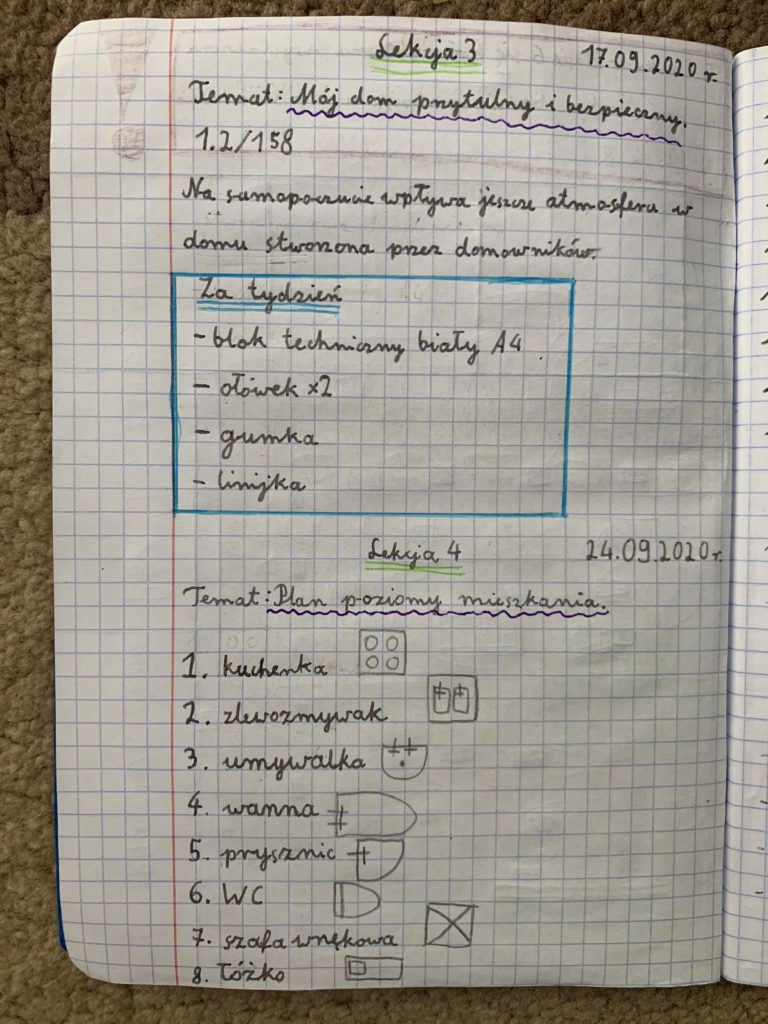 Lekcja 3 17.09.2020r.
Temat: Mój dom przytulny i bezpieczny.
1.2/158
Na samopoczucie wpływa jeszcze atmosfera w
domu stworzona przez domowników.
Za tydzień
- blok techniczny biały A4
- ołówek x2
- gumka
- linijka
Lekcja 4 24.09.2020r.
Temat: Plan poziomy mieszkania.
1. kuchenka
2. zlewozmywak
3. umywalka
4. wanna
5. prysznic
6. WC
7. szafa wnękowa
8. łóżko